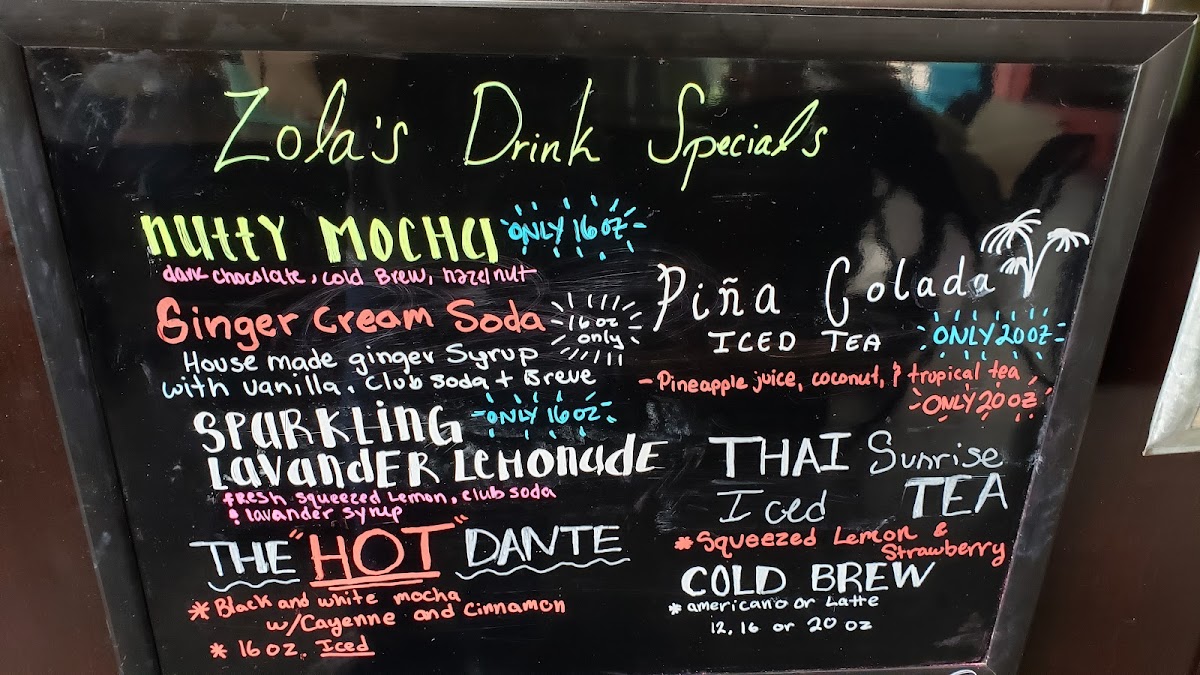 Zola's Drink Specials
nutty Mocha ONLY 16 oz
dark chocolate, cold Brew, hazelnut
Ginger Cream Soda 16 oz only
House made ginger Syrup
with vanilla, Club soda + Breve
SPARKLING ONLY 16 oz
LAVANDER LEMONADE
fresh squeezed Lemon, club soda
& lavander syrup
THE "HOT" DANTE
* Black and white mocha
w/Cayenne and Cinnamon
* 16 oz. Iced
Piña Colada
ICED TEA ONLY 20 oz
- Pineapple juice, coconut, & tropical tea
ONLY 20 oz
THAI Sunrise
Iced TEA
* Squeezed Lemon &
Strawberry
COLD BREW
* americano or Latte
12, 16 or 20 oz